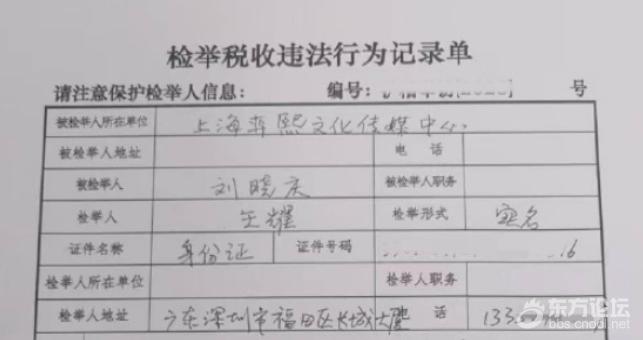 检举税收违法行为记录单
请注意保护检举人信息： 编号： 号
被检举人所在单位 上海 熙文化传媒中心
被检举人地址 电 话
被检举人 刘晓庆 被检举人职务
检举人 王耀 检举形式 实名
证件名称 身份证 证件号码 16
检举人所在单位 检举人职务
检举人地址 广东深圳市福田区长城大厦 电 话 133
东方论坛
bbs.cnool.net